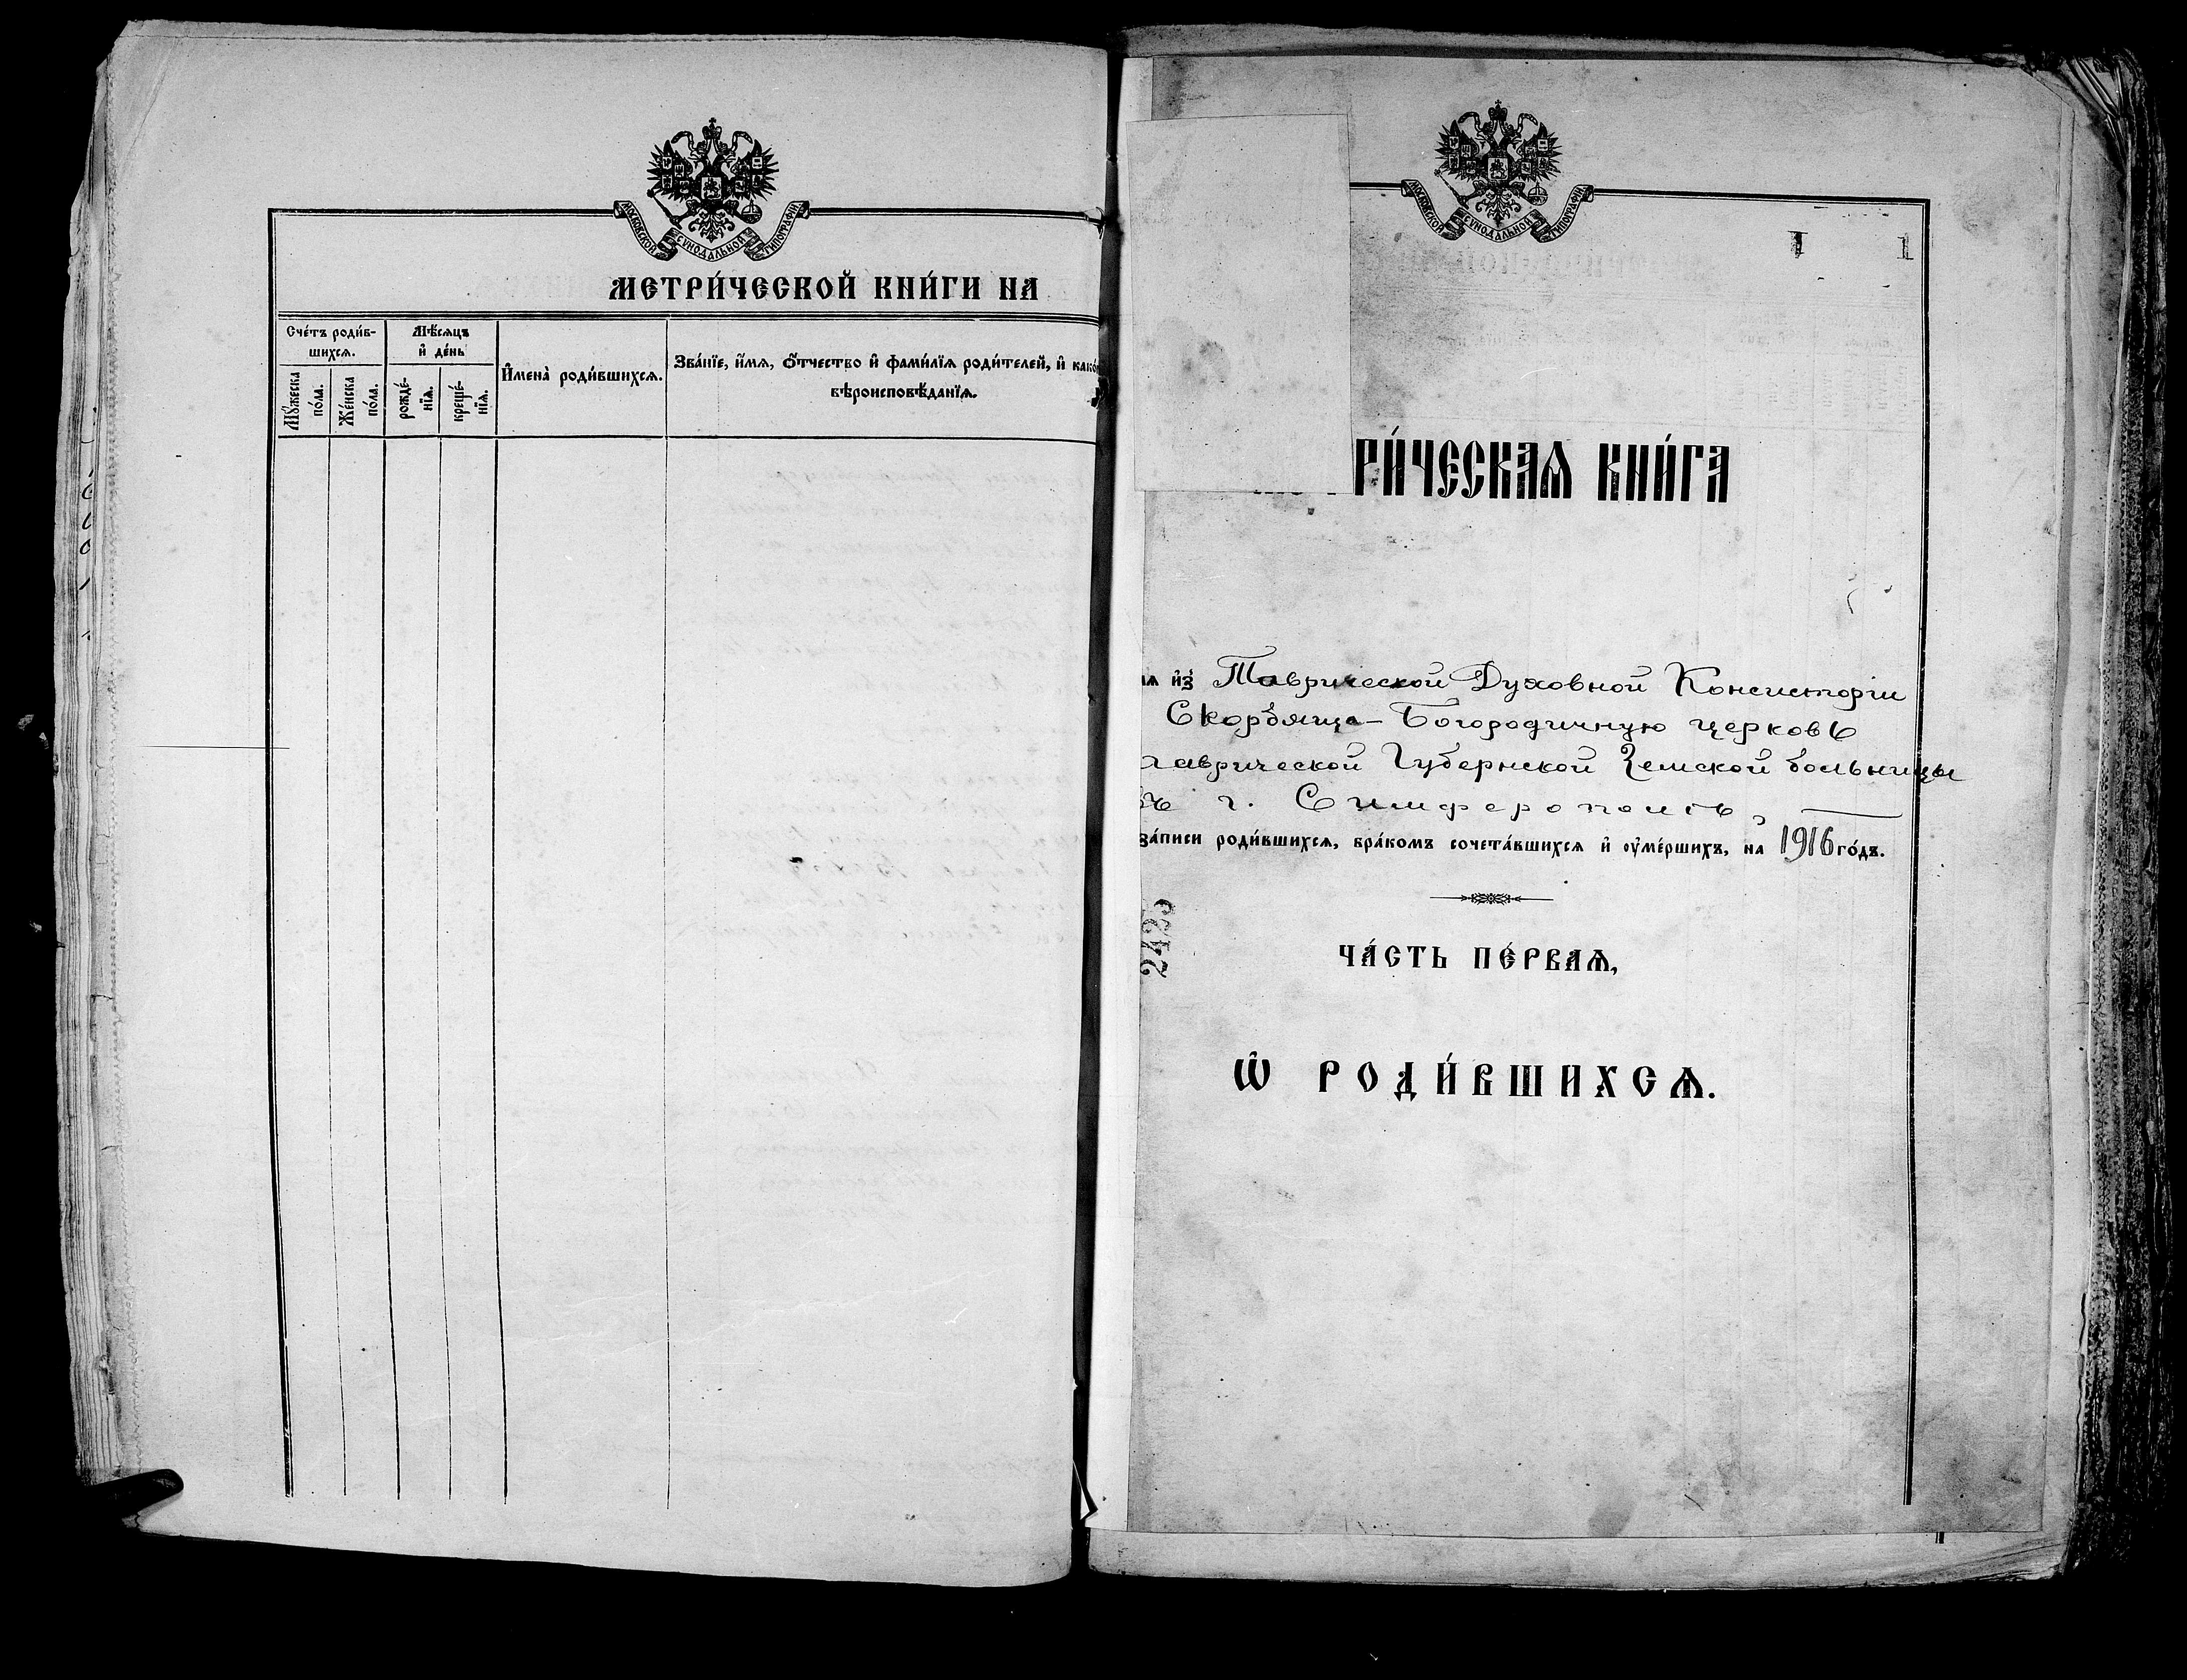 МОСКОВСКОЙ СѴНОДАЛЬНОЙ ТИПОГРАФІИ
МЕТРИ́ЧЕСКОЙ КНИ́ГИ НА
Сче́тъ роди́в-
шихсѧ.
Мѣ́сѧцъ
и҆ де́нь
И҆мена̀ роди́вшихсѧ.
Зва́нїе, и҆́мѧ, ѻ҆́тчество и҆ фами́лїѧ роди́телей, и҆ како́
вѣроисповѣ́данїѧ.
Мꙋ́жеска
по́ла.
Же́нска
по́ла.
рожде́-
нїѧ.
креще́-
нїѧ.
МОСКОВСКОЙ СѴНОДАЛЬНОЙ ТИПОГРАФІИ
1
РИ́ЧЕСКАѦ КНИ́ГА
ѧ и҆з̾ Таврической Духовной Консисторіи
Скорбяще-Богородичную церковь
Таврической Губернской Земской больницы
въ г. Симферополѣ,
за́писи роди́вшихсѧ, бра́комъ сочета́вшихсѧ и҆ ᲂу҆ме́ршихъ, на 1916 го́дъ.
2425
ЧА́СТЬ ПЕ́РВАѦ,
Ѡ҆ РОДИ́ВШИХСѦ.